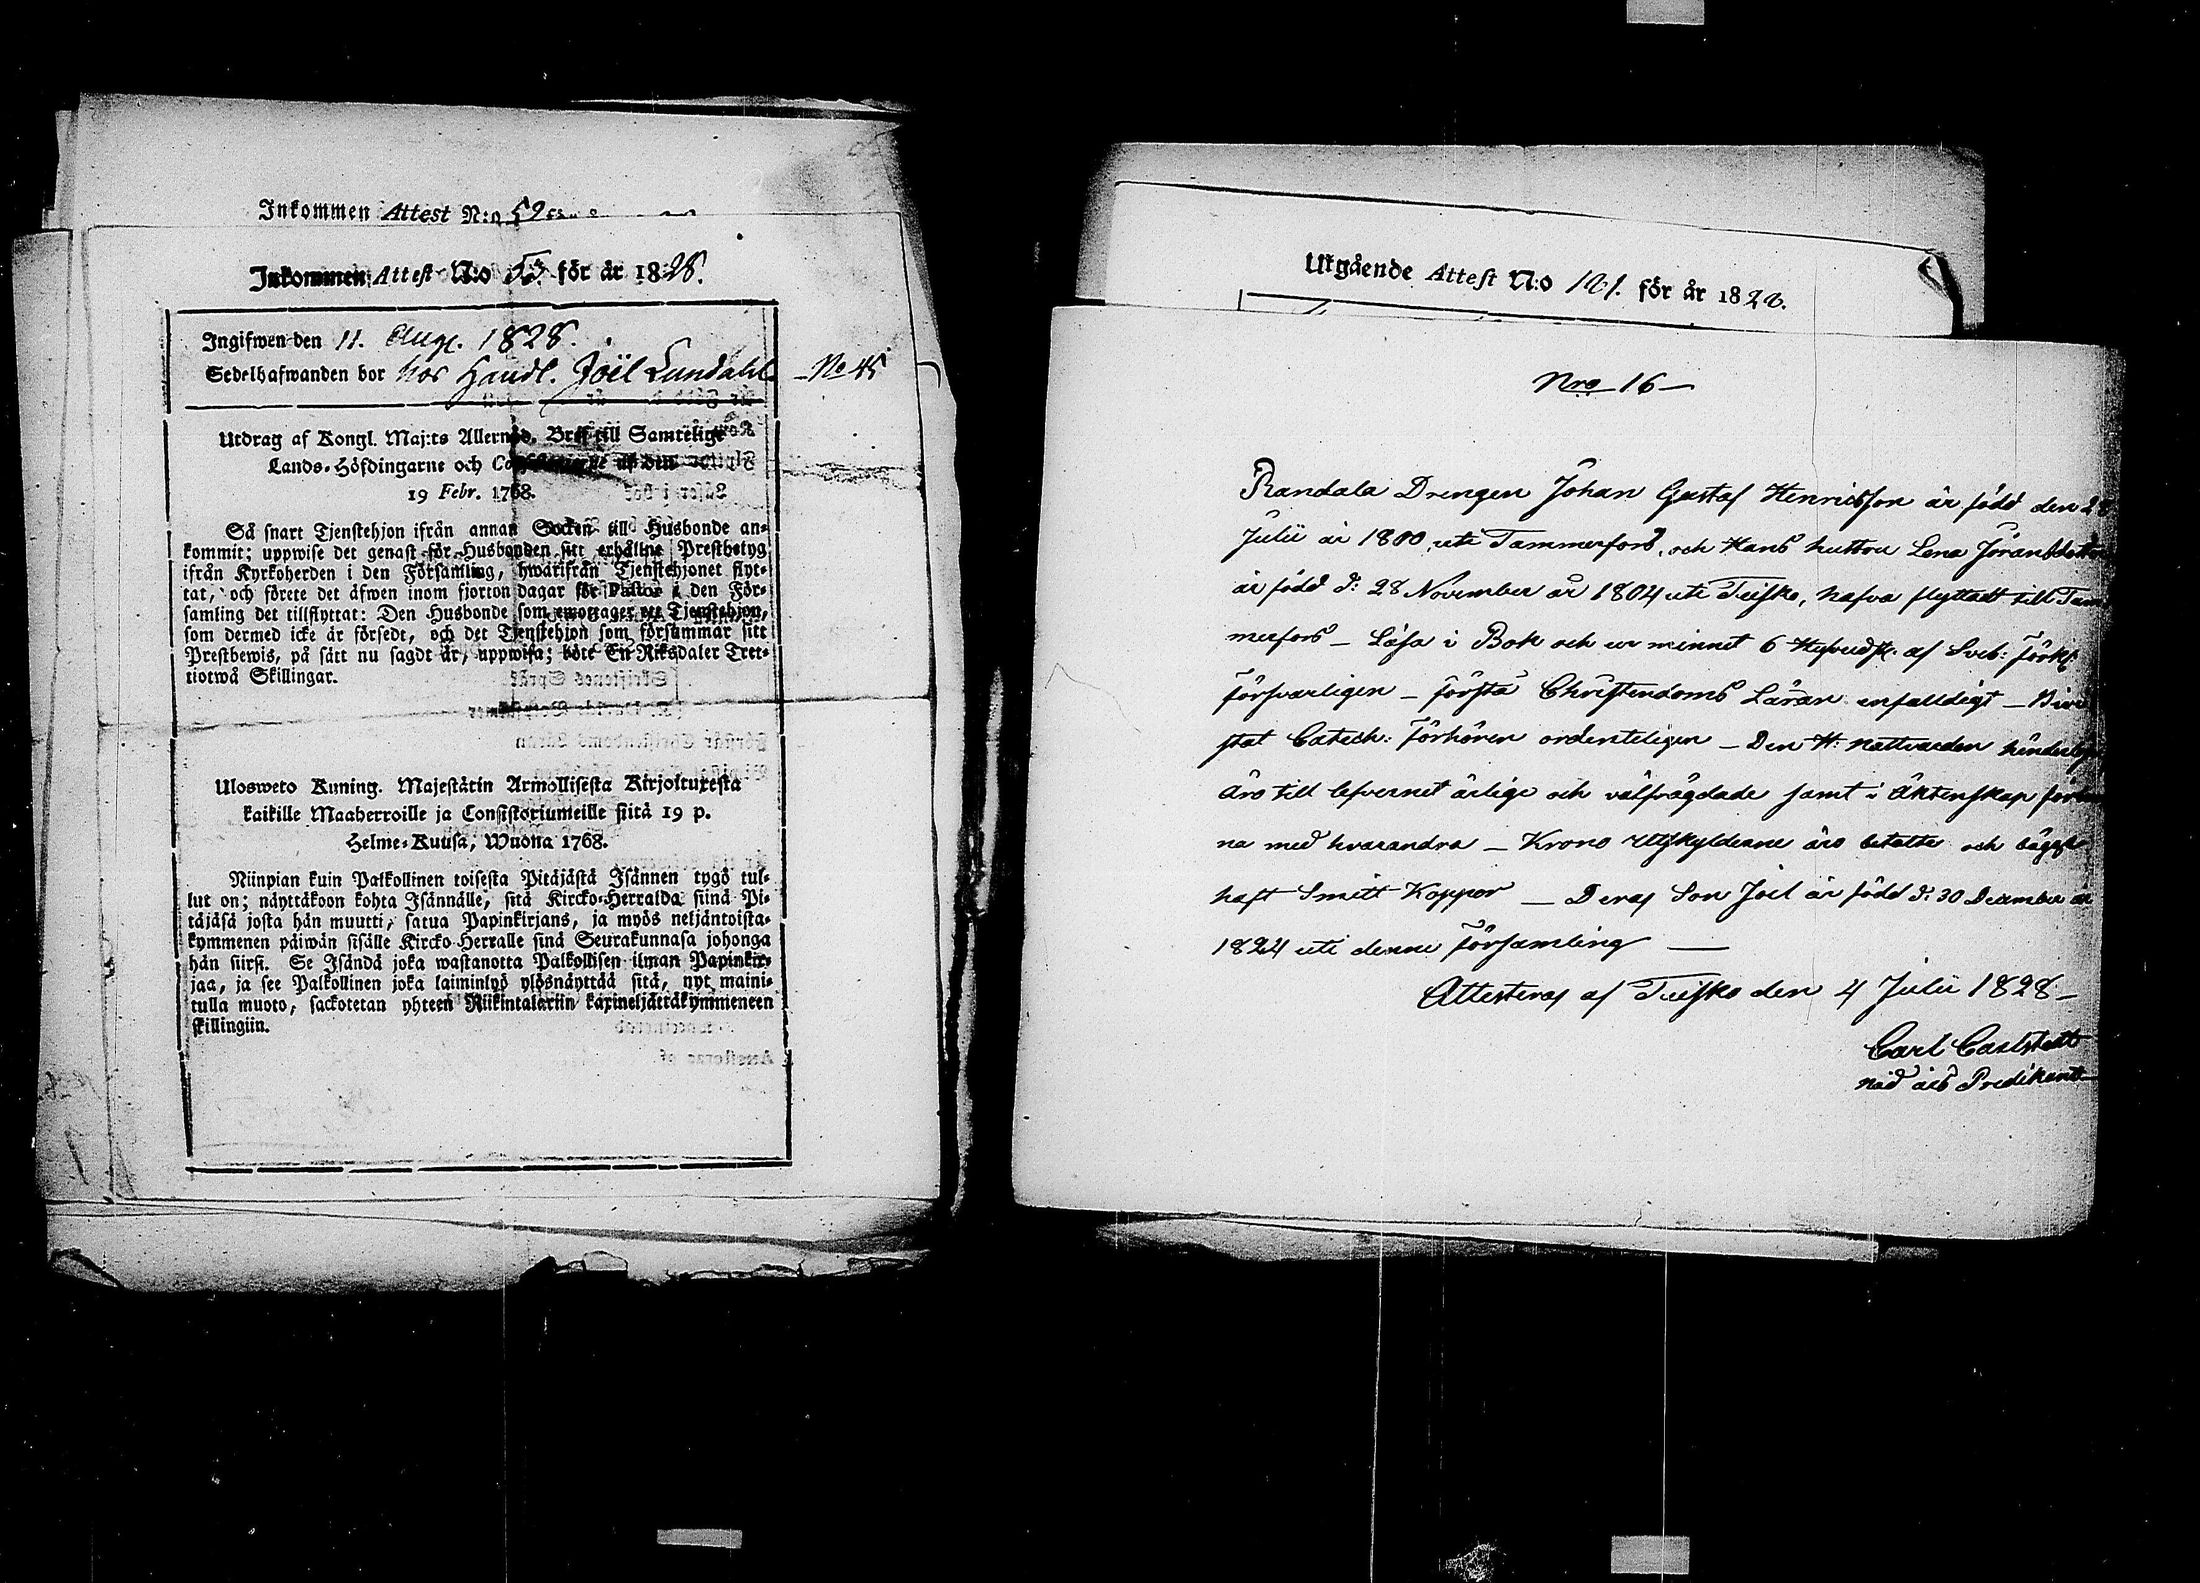 Inkommen Attest N:o 59
Inkommen Attest N:o 55. för år 1828.
Ingifwen den 11. Aug. 1828.
Sedelhafwanden bor hos Handl. Joël Lundahl. – No 45
Utdrag af Kongl. Maj:ts Allernåd. Bref till Samtelige
Lands-Höfdingarne och af den
19 Febr. 1768.
Så snart Tjenstehjon ifrån annan Socken till Husbonde an-
kommit; uppwise det genast för Husbonden sitt erhållne Prestbetyg
ifrån Kyrkoherden i den Församling, hwarifrån Tjenstehjonet flyt-
tat, och förete det äfwen inom fjorton dagar för Pastor i den För-
samling det tillflyttat: Den Husbonde som emottager ett Tjenstehjon,
som dermed icke är försedt, och det Tjenstehjon som försummar sitt
Prestbewis, på sätt nu sagdt är, uppwisa; böte En Riksdaler Tret-
tiotwå Skillingar.
Ulosweto Kuning. Majestätin Armollisesta Kirjoituxesta
kaikille Maaherroille ja Consistoriumeille siitä 19 p.
Helme-Kuusa, Wuona 1768.
Niinpian kuin Palkollinen toisesta Pitäjästä Isännen tygö tul-
lut on; näyttäkoon kohta Isännälle, sitä Kircko-Herralda siinä Pi-
täjäsä josta hän muutti, satua Papinkirjans, ja myös neljäntoista-
kymmenen päiwän sisälle Kircko-Herralle siinä Seurakunnasa johonga
hän siirsi. Se Isändä joka wastanotta Palkollisen ilman Papinkir-
jaa, ja see Palkollinen joka laiminlyö ylösnäyttää sitä, nyt maini-
tulla muoto, sackotetan yhteen Riikintalariin kaxineljättäkymmeneen
skillingiin.
Utgående Attest N:o 121. för år 1828.
Nro 16 –
Randala Drengen Johan Gustaf Henricsson är född den 28
Julii år 1800 uti Tammerfors, och Hans hustru Lena Jöransdotter
är född d: 28 November år 1804 uti Teisko, hafva flyttadt till Tam
merfors – Läsa i Bok och ur minnet 6 Hufvudst. af Sveb: Förkl:
försvarligen – förstå Christendoms Läran enfalldigt – Bivi
stat Catech: Förhören ordenteligen – Den H: Nattvarden
Äro till lefvernet ärlige och välfrägdade samt i Äktenskap före
na med hvarandra – Krono Utskylderne äro betalte och bägge
haft Smitt Koppor – Deras Son Joel är född d: 30 December år
1824 uti denne Församling –
Attesteras af Teisko den 4 Julii 1828 –
Carl Carlstedt
Nåd års Predikant